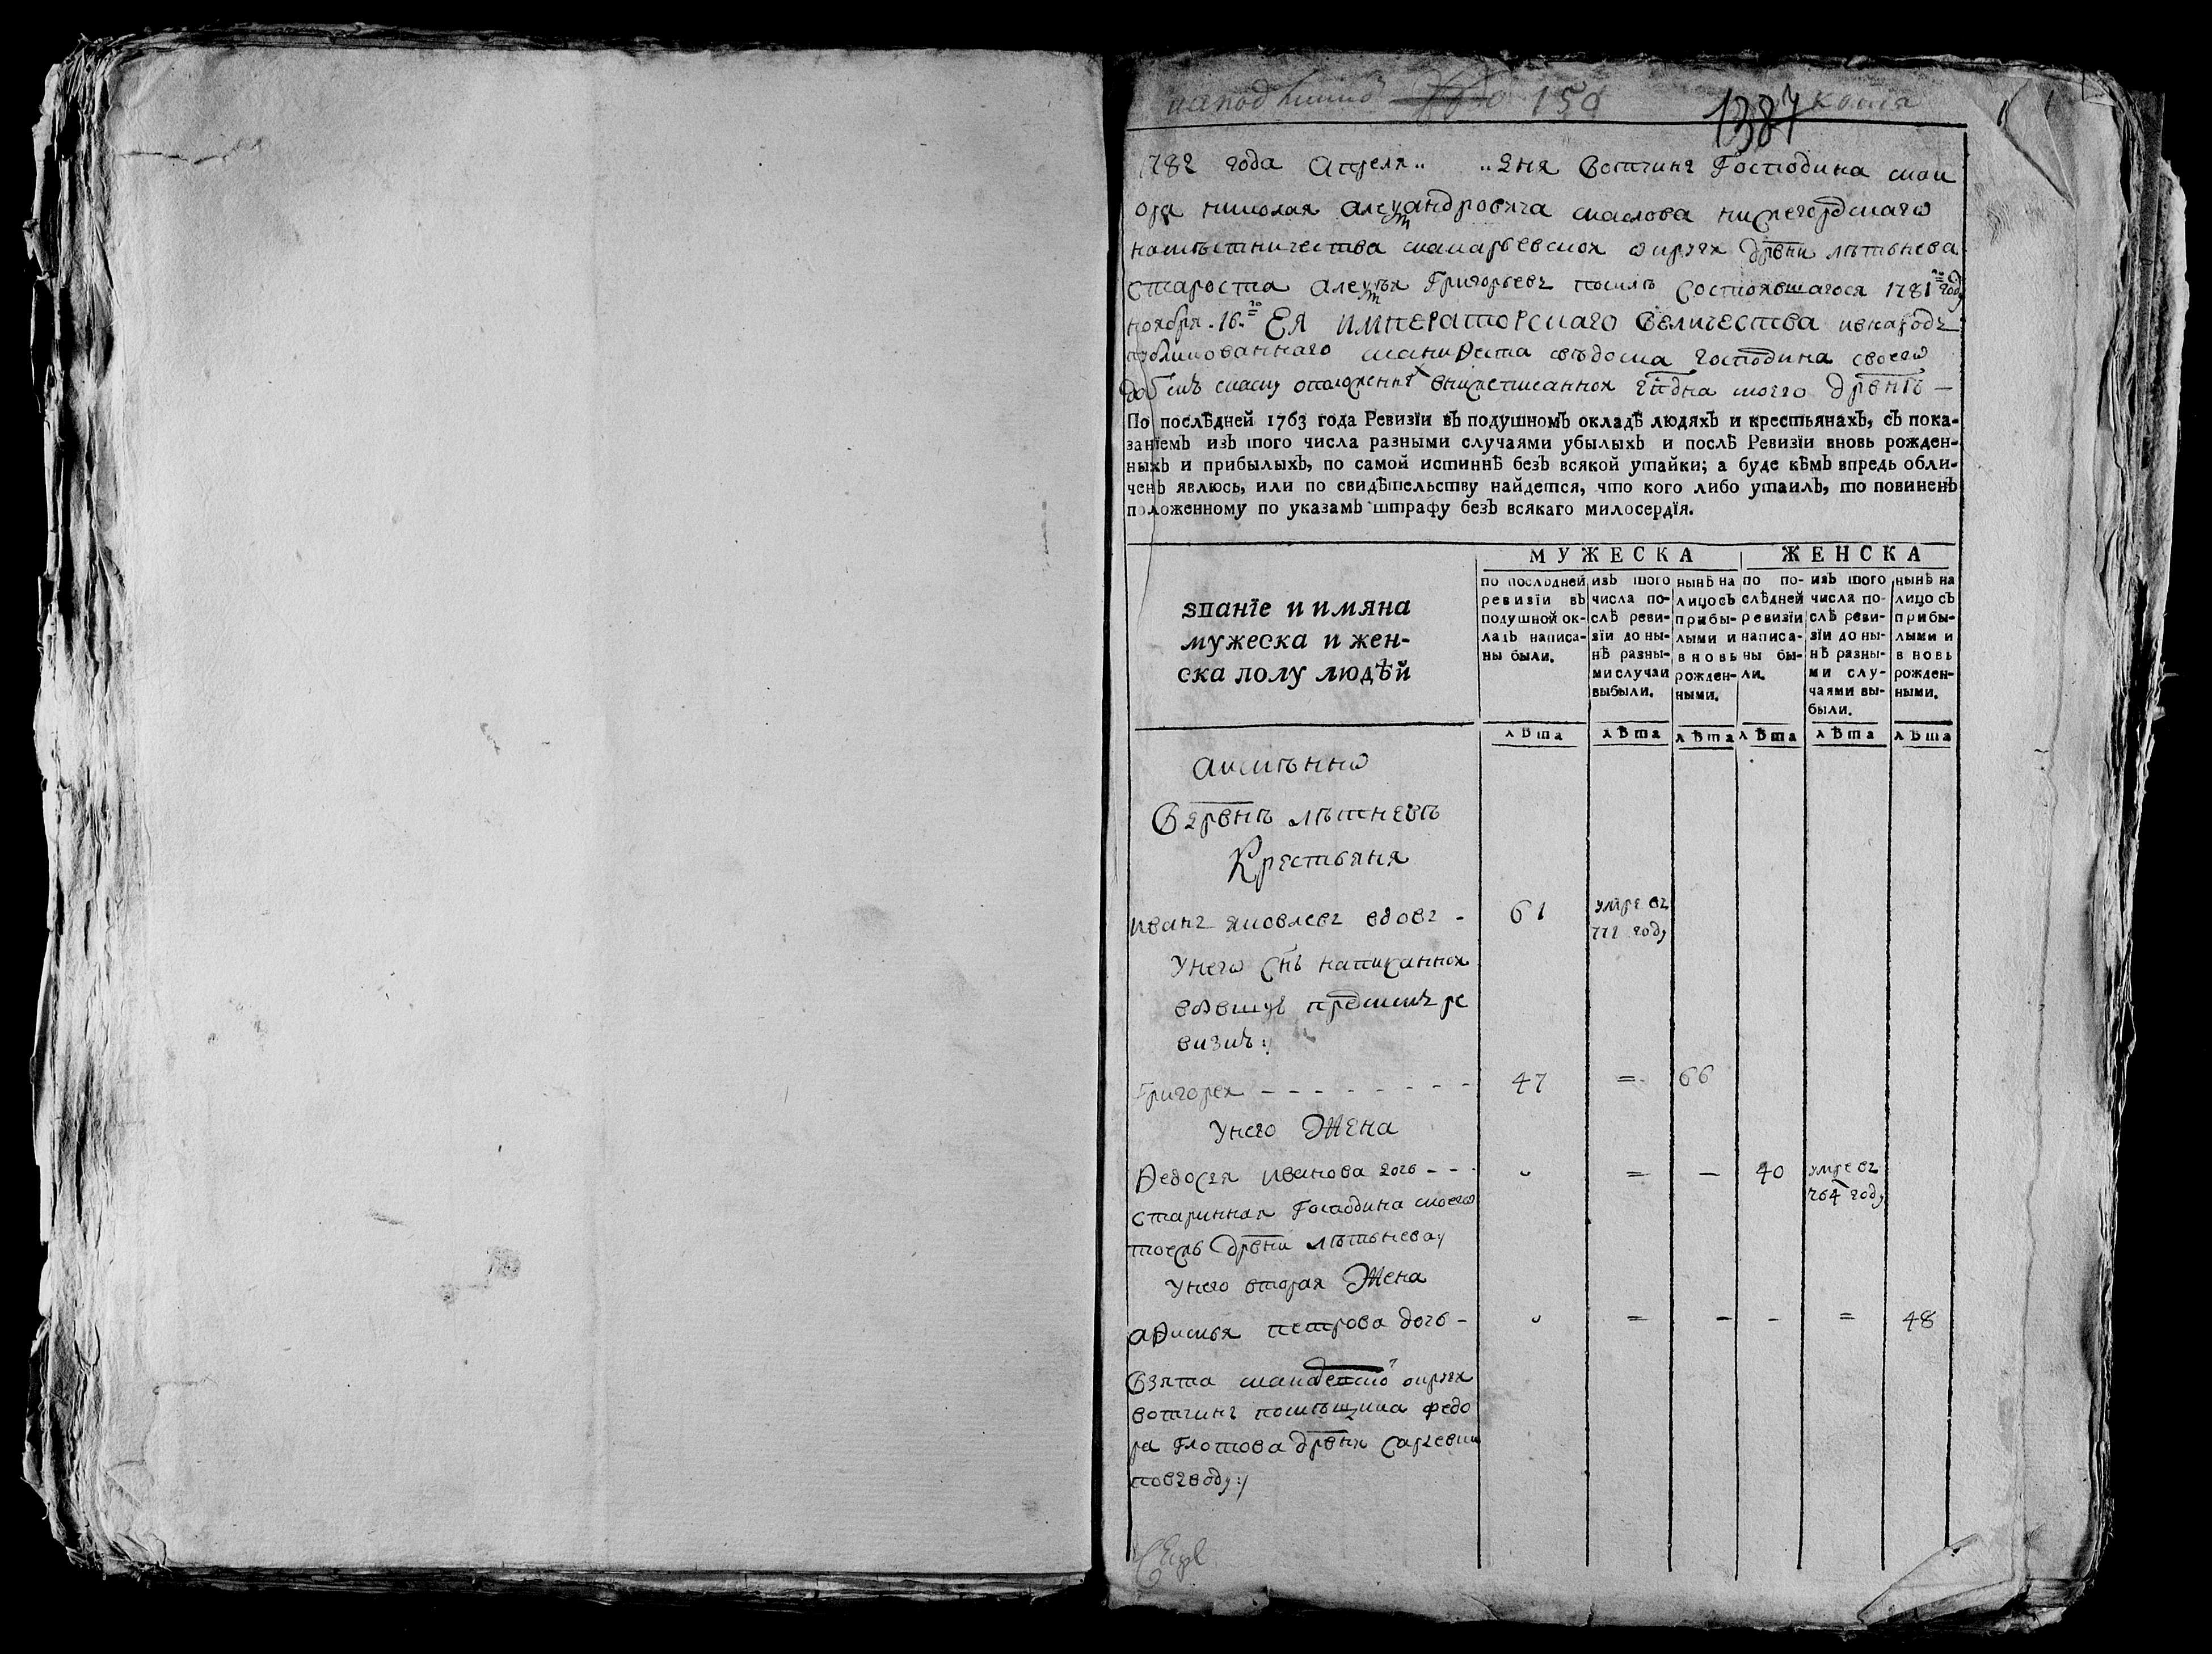 150 1387 копїя
1782 года апреля .. .. дня вотчины Господина маи
ора николая александровича маслова нижегородскаго
намѣстничества макарьевской округи дрвни лѣтнева
староста алексѣй Григорьевъ по силѣ состоявшагося 1781го году
ноября 16го ЕЯ ИМПЕРАТОРСКАГО величества и в народъ
публикованнаго манифеста господина своего
даю сию скаску о положенных в нижеписанной гпдна моего дрвнѣ —
По послѣдней 1763 года Ревизїи въ подушномъ окладѣ людяхъ и крестьянахъ, съ пока-
занїемъ изъ того числа разными случаями убылыхъ и послѣ Ревизїи вновь рожден-
ныхъ и прибылыхъ, по самой истиннѣ безъ всякой утайки; а буде кѣмъ впредь обли-
ченъ явлюсь, или по свидѣтельству найдется, что кого либо утаилъ, то повиненъ
положенному по указамъ штрафу безъ всякаго милосердїя.
званїе и имяна
мужеска и жен-
ска полу людѣй
МУЖЕСКА ЖЕНСКА
по послѣдней
ревизїи въ
подушной ок-
ладъ написа-
ны были.
изъ того
числа по-
слѣ реви-
зїи до ны-
нѣ разны-
ми случаи
выбыли.
нынѣ на
лицо съ
прибы-
лыми и
вновь
рожден-
ными.
по по-
слѣдней
ревизїи
написа-
ны бы-
ли.
изъ того
числа по-
слѣ реви-
зїи до ны-
нѣ разны-
ми слу-
чаями вы-
были.
нынѣ на
лицо съ
прибы-
лыми и
вновь
рожден-
ными.
лѣта лѣта лѣта лѣта лѣта лѣта
а имѣнно
В дрвнѣ лѣтневѣ
Крестьяня
иванъ яковлевъ вдовъ - 61 умре въ
772 году
У него снъ написанной
в бывшую пред симъ ре
визию:/
Григорей - - - - - - - - 47 = 66
У него Жена
Ѳедосья иванова дочь - - - = — 40 умре въ
764 году
старинная Господина моего
тоежъ дрвни лѣтнева:/
У него вторая Жена
аѳимья петрова дочь - = - - = 48
Взята округи
вотчины помѣщика федо
ра Глотова дрвни
по выводу:/